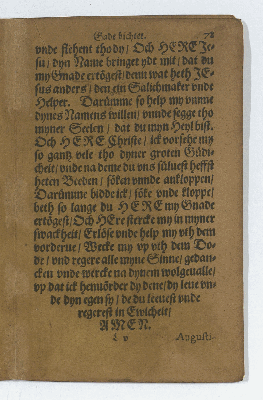 Gade bichter. 78
vnde stehent tho dy / Och HERE Je-
su / dyn Name bringet ydt mit / dat du
my Gnade ertögest / denn wat heth JE-
sus anders / den ein Salichmaker vnde
Helper. Darümme so help my vmme
dynes Namens willen / vnnde segge tho
myner Seelen / dat du myn Heyl bist.
Och HERE Christe / ick vorsehe my
so gantz vele tho dyner groten Güdi-
cheit / vnde na deme du vns süluest hefft
heten Bidden / söken vnnde ankloppen /
Darümme bidde ick / söke vnde kloppe /
beth so lange du HERE my Gnade
ertögest / Och HEre stercke my in myner
swackheit / Erlöse vnde help my vth dem
vorderue / Wecke my vp vth dem Do-
de / vnd regere alle myne Sinne / gedan-
cken vnde wercke na dynem wolgeualle /
vp dat ick henuörder dy dene / dy leue vn-
de dyn egen sy / de du leuest vnde
regerest in Ewicheit /
AMEN.
L v Augusti-